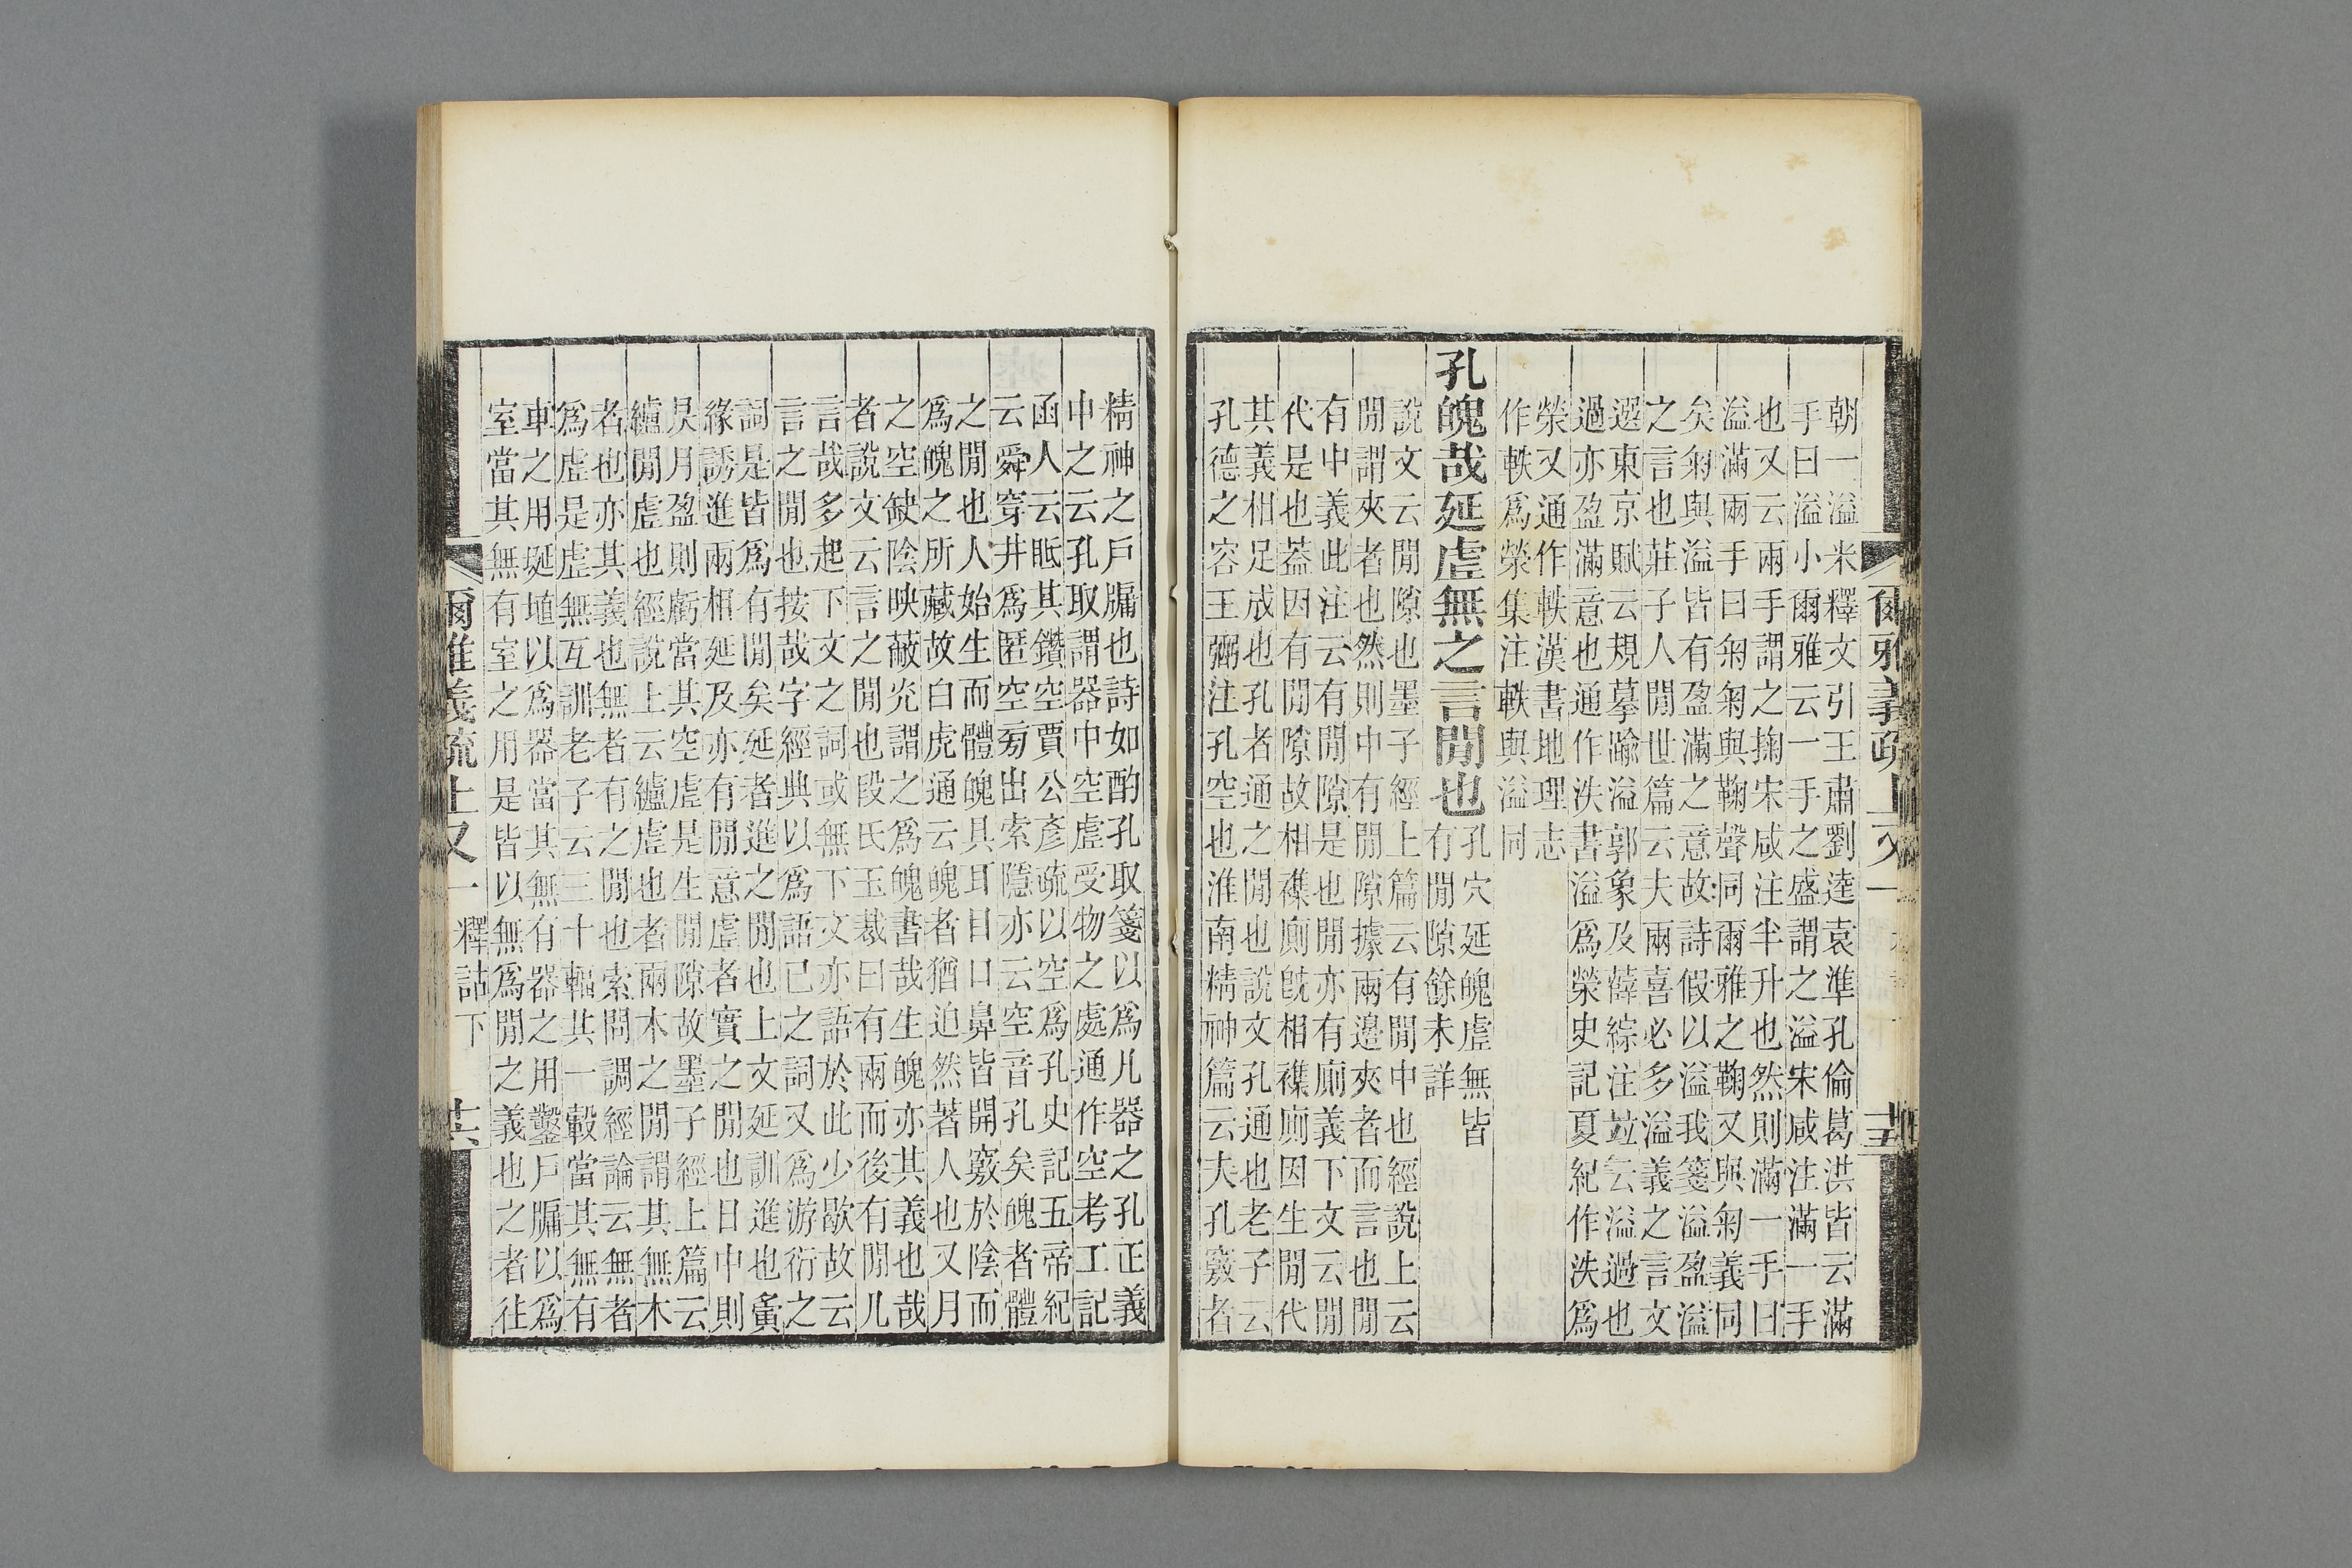 爾雅義疏上又一
朝一溢米釋文引王肅劉逵袁準孔倫葛洪皆云滿
手曰溢小爾雅云一手之盛謂之溢宋咸注滿一手
也又云兩手謂之掬宋咸注半升也然則滿一手曰
溢滿兩手曰匊匊與鞠聲同爾雅之鞠又與匊義同
矣匊與溢皆有盈滿之意故詩假以溢我箋溢盈溢
之言也莊子人閒世篇云夫兩喜必多溢義之言文
選東京賦云規摹踰溢郭象及薛綜注竝云溢過也
過亦盈滿意也通作泆書溢爲榮史記夏紀作泆爲
榮又通作軼漢書地理志
作軼爲榮集注軼與溢同
孔魄哉延虛無之言閒也
孔穴延魄虛無皆
有閒隙餘未詳
說文云閒隙也墨子經上篇云有閒中也經說上云
閒謂夾者也然則中有閒隙據兩邊夾者而言也閒
有中義此注云有閒隙是也閒亦有廁義下文云閒
代是也葢因有閒隙故相襍廁旣相襍廁因生閒代
其義相足成也孔者通之閒也說文孔通也老子云
孔德之容王弼注孔空也淮南精神篇云夫孔竅者
精神之戶牖也詩如酌孔取箋以爲儿器之孔正義
中之云孔取謂器中空虛受物之處通作空考工記
函人云眡其鑽空賈公彥疏以空爲孔史記五帝紀
云舜穿井爲匿空㫄出索隱亦云空音孔矣魄者體
之閒也人始生而體魄具耳目口鼻皆開竅於陰而
爲魄之所藏故白虎通云魄者猶迫然著人也又月
之空缺陰映蔽光謂之爲魄書哉生魄亦其義也哉
者說文云言之閒也段氏玉裁曰有兩而後有閒儿
言哉多起下文之詞或無下文亦語於此少歇故云
言之閒也按哉字經典以爲語已之詞又爲游衍之
詞是皆爲有閒矣延者進之閒也上文延訓進也夤
緣誘進兩相延及亦有閒意虛者實之閒也日中則
昃月盈則虧當其空虛是生閒隙故墨子經上篇云
纑閒虛也經說上云纑虛也者兩木之閒謂其無木
者也亦其義也無者有之閒也索問調經論云無者
爲虛是虛無互訓老子云三十輻共一轂當其無有
車之用埏埴以爲器當其無有器之用鑿戶牖以爲
室當其無有室之用是皆以無爲閒之義也之者往
爾雅義疏上又一 釋詁下 十六